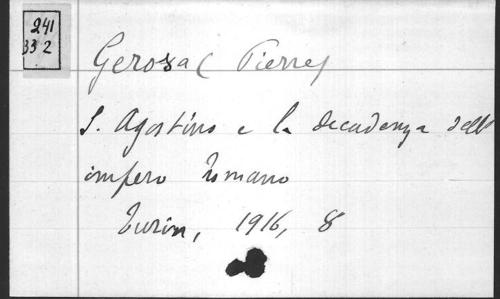 241
33 2
Gerosa (Pierre)
S. Agostino e la decadenza dell'
impero romano
Turin, 1916, 8